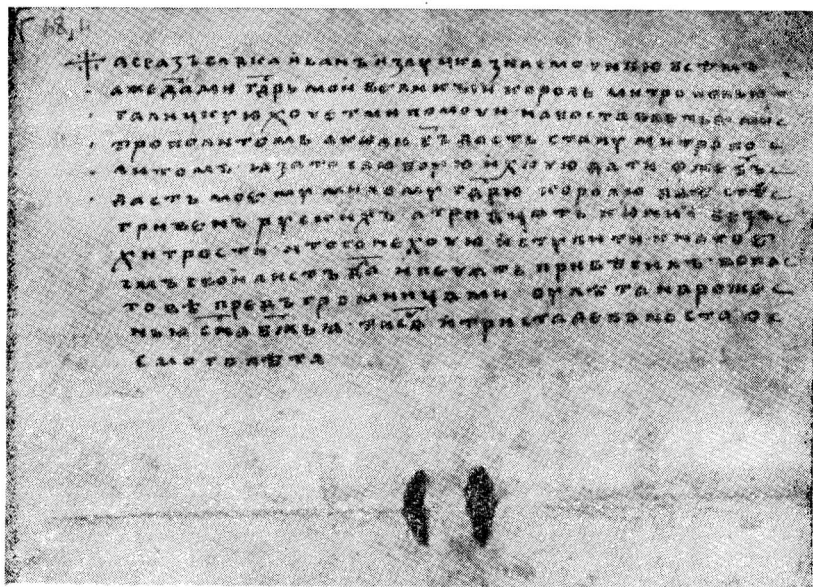 Г 48,4
а се азъ влдка иванъ из луцка знаемо чиню всѣмъ
аже дами гдрь мои великъıи король митрополью
галицкую хочет ми помочи на поставленье ми
трополитомъ а коли бъ дасть стану митропо
литомъ ꙗ за то слюбую и хочю дати ожь бъ
дасть моему милому гдрю королю двѣстѣ
гривенъ рускихъ а тридцать конии безъ
хитрости и того не хочю иступити и на то е
смъ свои листъ да и печать привѣсилъ
товѣ предъ громницами оу лѣта нароже
нью сна бжьꙗ тисѧ и триста девѧноста о
смого лѣта